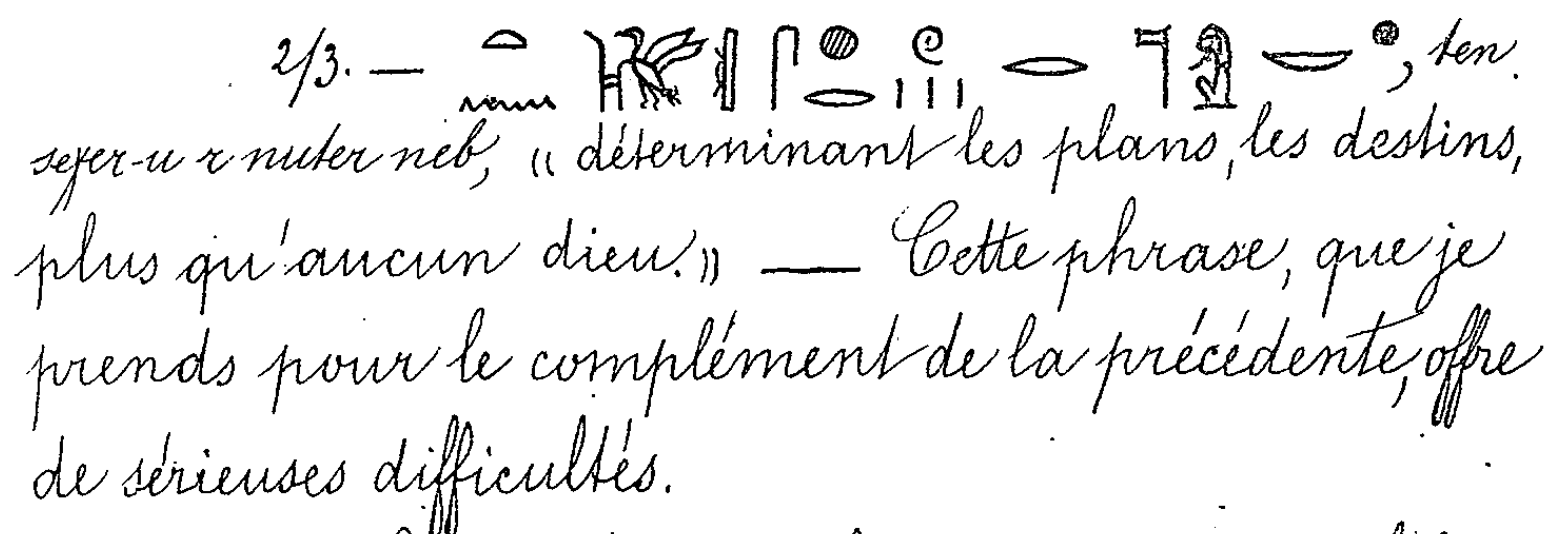 2/3. — 𓏏𓈖 𓋴𓐍𓂋𓏲𓏥 𓂋 𓊹𓀭 𓎟, ten.
seχer-u r nuter neb, « déterminant les plans, les destins,
plus qu'aucun dieu. » — Cette phrase, que je
prends pour le complément de la précédente, offre
de sérieuses difficultés.